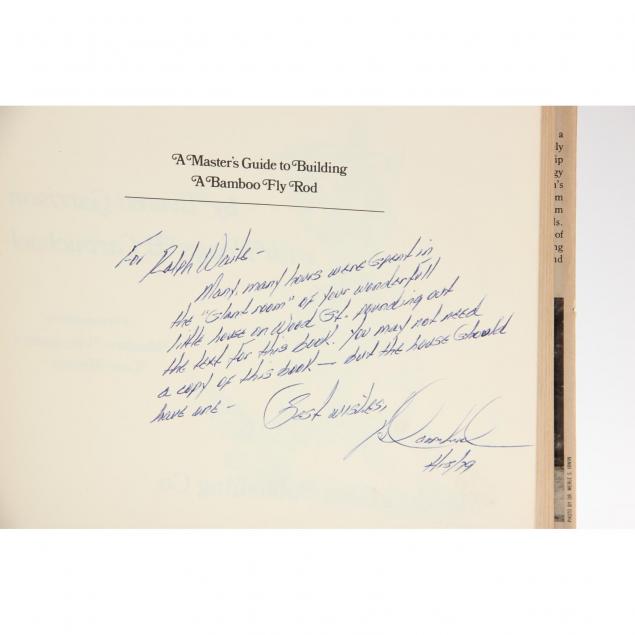 A Master's Guide to Building
A Bamboo Fly Rod
For Ralph Waite –
Many, many hours were spent in
the "slant room" of your wonderfull
little house on Wood St. pounding out
the text for this book. You may not need
a copy of this book — but the house should
have one –
Best wishes,
4/15/79
a
ly
ip
gy
's
m
m
ds.
of
ng
nd
PHOTO BY DR. MERLE S. IRWIN